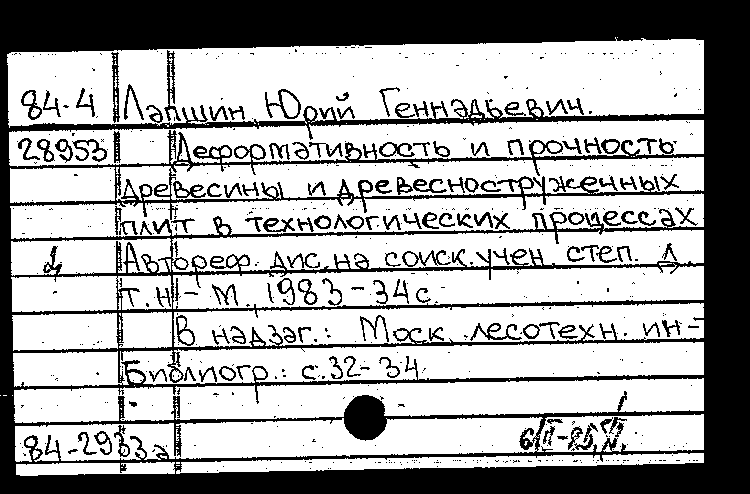 84-4 Лапшин, Юрий Геннадьевич.
28953 Деформативность и прочность
древесины и древесностружечных
плит в технологических процессах
Автореф. дис. на соиск. учен. степ. д.
т.н. - М., 1983 - 34 с.
В надзаг.: Моск. лесотехн. ин-т
Библиогр.: с. 32-34.
84-2933а